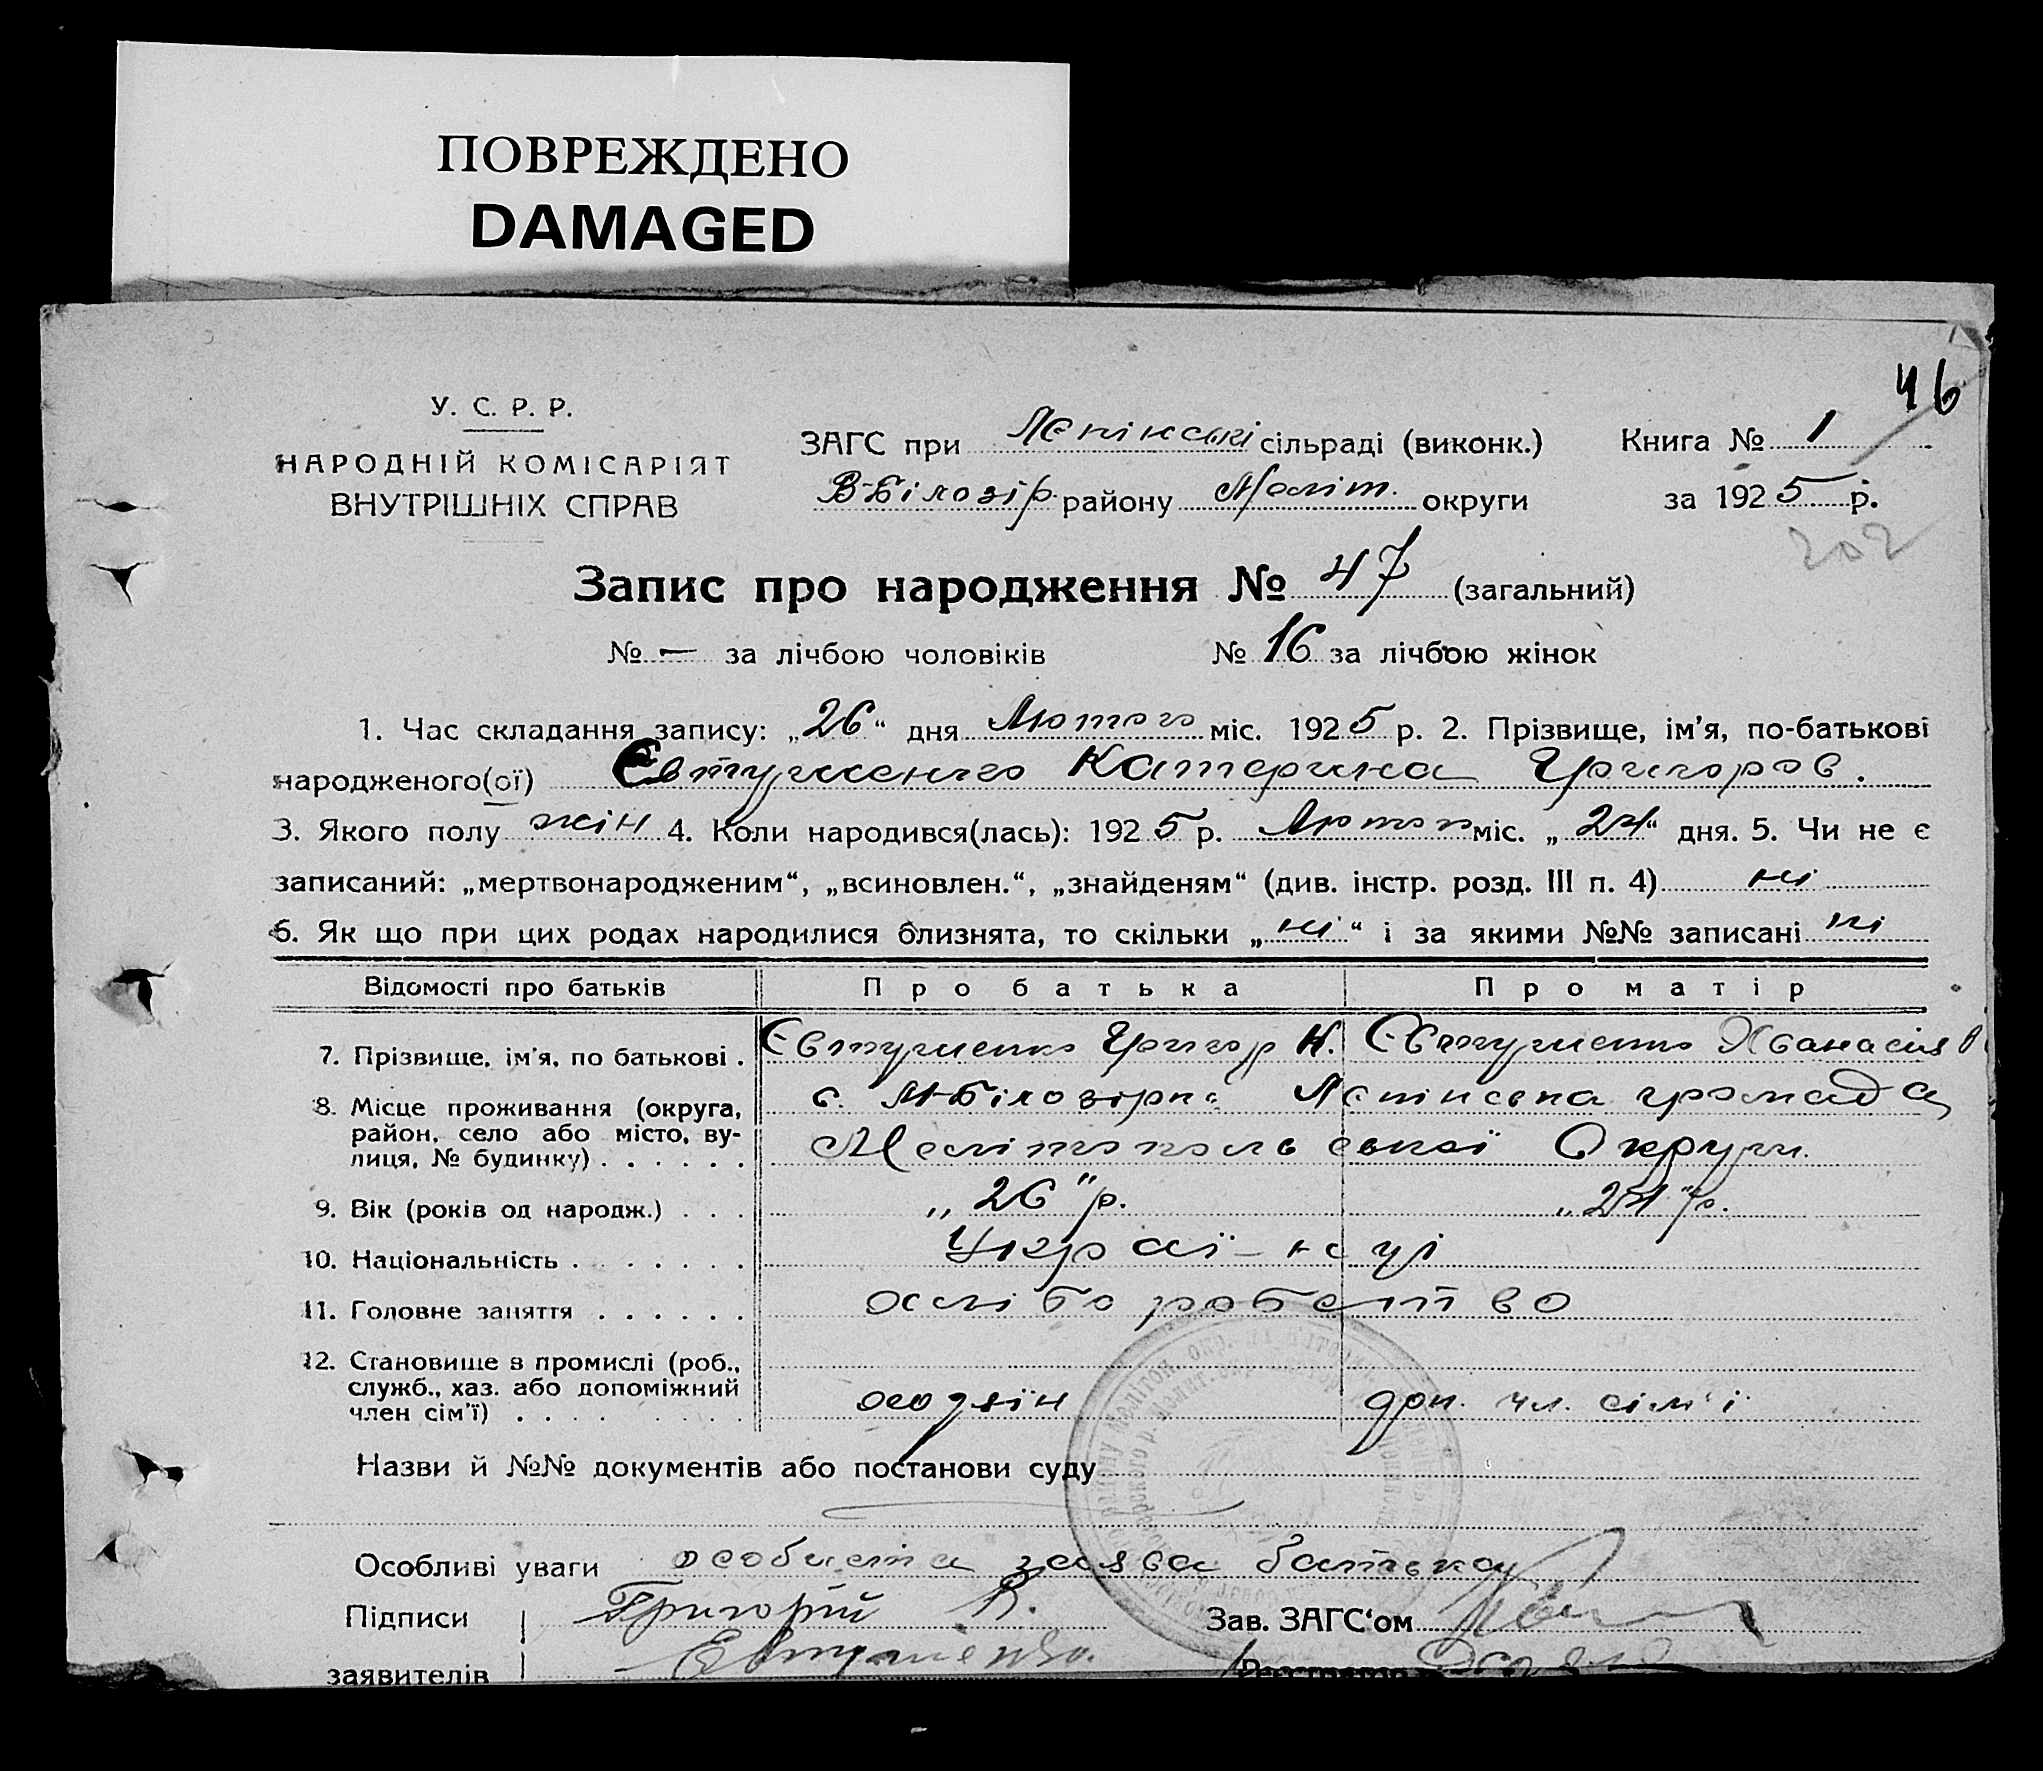 ПОВРЕЖДЕНО
DAMAGED
46
У. С. Р. Р.
НАРОДНІЙ КОМІСАРІЯТ
ВНУТРІШНІХ СПРАВ
ЗАГС при Ленінські сільраді (виконк.) Книга № 1
В-Білозір. району Меліт. округи за 1925 р.
202
Запис про народження № 47 (загальний)
№ — за лічбою чоловіків № 16 за лічбою жінок
1. Час складання запису: „26“ дня Лютого міс. 1925 р. 2. Прізвище, ім'я, по-батькові
народженого(ої) Євтушенко Катерина Григоров.
3. Якого полу жін 4. Коли народився(лась): 1925 р. Лютого міс. „24“ дня. 5. Чи не є
записаний: „мертвонародженим“, „всиновлен.“, „знайденям“ (див. інстр. розд. III п. 4) ні
6. Як що при цих родах народилися близнята, то скільки „ні“ і за якими №№ записані ні
Відомості про батьків Про батька Про матір
7. Прізвище, ім'я, по батькові . Євтушенко Григор К. Євтушенко Афанасія
8. Місце проживання (округа, район, село або місто, вулиця, № будинку) . . . . . . с. М-Білозірка Ленінська громада
Мелітопольської Округи.
9. Вік (років од народж.) . . . „26“ р. „24“ р.
10. Національність . . . . . . . Украї-нці
11. Головне заняття . . . . . . хліборобство
12. Становище в промислі (роб., служб., хаз. або допоміжний член сім'ї) . . . . . . . . хозяїн доп. чл. сім'ї
Назви й №№ документів або постанови суду
Особливі уваги особиста заява батька
Підписи Григорій К. Зав. ЗАГС'ом
заявителів Евтушенко.